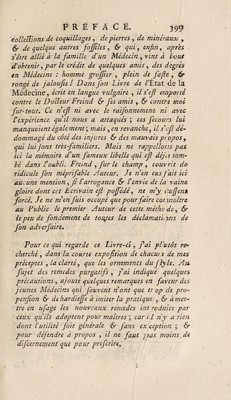 PREFACE. 399
collections de coquillages, de pierres, de minéraux,
& de quelque autres fossiles, & qui, enfin, après
s'être allié à la famille d'un Médecin, vint à bout
d'obtenir, par le crédit de quelques amis, des degrés
en Médecine : homme grossier, plein de faste, &
rongé de jalousie ! Dans son Livre de l'Etat de la
Médecine, écrit en langue vulgaire, il s'est emporté
contre le Docteur Freind & ses amis, & contre moi
sur-tout. Ce n'est ni avec le raisonnement ni avec
l'expérience qu'il nous a attaqués ; ces secours lui
manquoient également ; mais, en revanche, il s'est dé-
dommagé du côté des injures & des mauvais propos,
qui lui sont très-familiers. Mais ne rappellons pas
ici la mémoire d'un fameux libelle qui est déja tom-
bé dans l'oubli. Freind, sur le champ, couvrit de
ridicule son méprisable Auteur. Je n'en eus fait ici
aucune mention, si l'arrogance & l'envie de la vaine
gloire dont cet Ecrivain est possédé, ne m'y eussent
forcé. Je ne m'en suis occupé que pour faire connoître
au Public le premier Auteur de cette méthode, &
le peu de fondement de toutes les déclamations de
son adversaire.
Pour ce qui regarde ce Livre-ci, j'ai plutôt re-
cherché, dans la courte exposition de chacun de mes
préceptes, la clarté, que les ornements du style. Au
sujet des remedes purgatifs, j'ai indiqué quelques
précautions, ajouté quelques remarques en faveur des
jeunes Médecins qui souvent n'ont que trop de pro-
pension & de hardiesse à imiter la pratique, & à met-
tre en usage les nouveaux remedes introduits par
ceux qu'ils adoptent pour maîtres ; car il n'y a rien
dont l'utilité soit générale & sans exception ; &
pour défendre à propos, il ne faut pas moins de
discernement que pour prescrire,